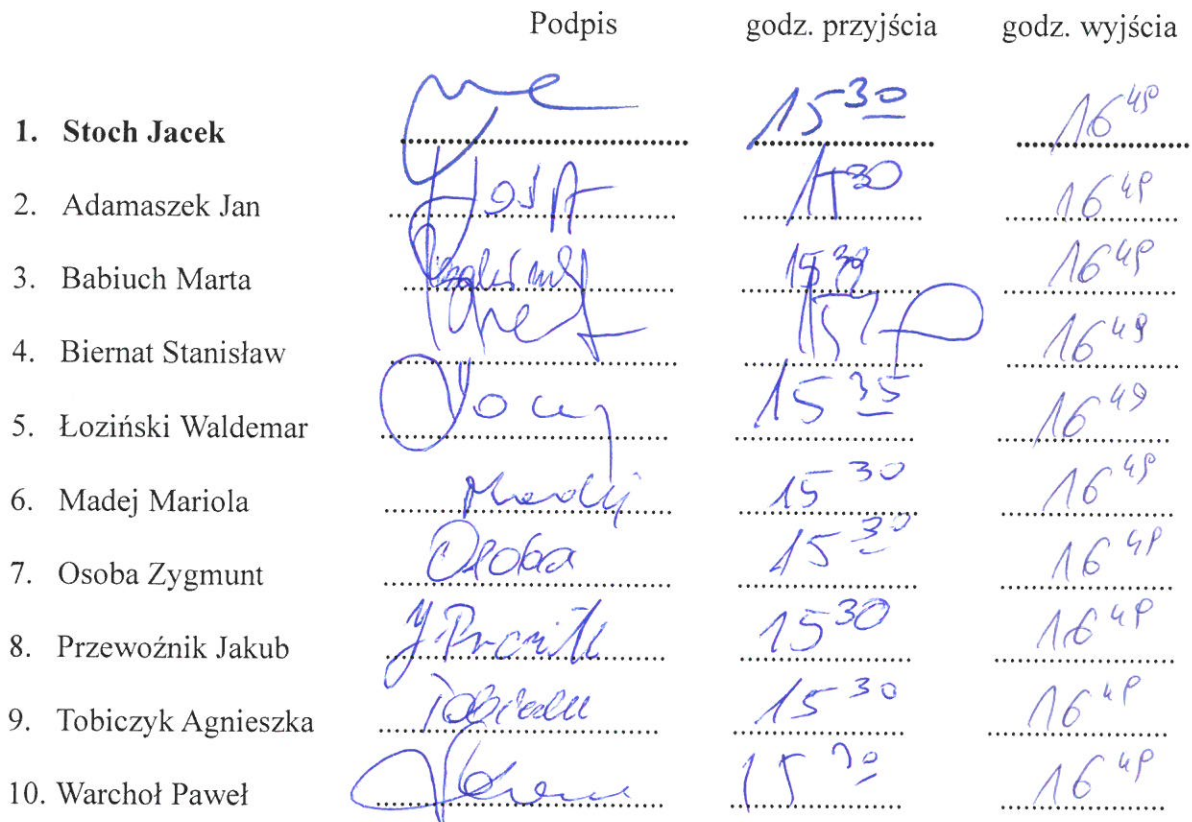 Podpis godz. przyjścia godz. wyjścia
1. Stoch Jacek 15 30 16 49
2. Adamaszek Jan 15 30 16 49
3. Babiuch Marta 15 30 16 49
4. Biernat Stanisław 16 49
5. Łoziński Waldemar 15 35 16 49
6. Madej Mariola Madej 15 30 16 49
7. Osoba Zygmunt Osoba 15 30 16 49
8. Przewoźnik Jakub 15 30 16 49
9. Tobiczyk Agnieszka 15 30 16 49
10. Warchoł Paweł 15 30 16 49